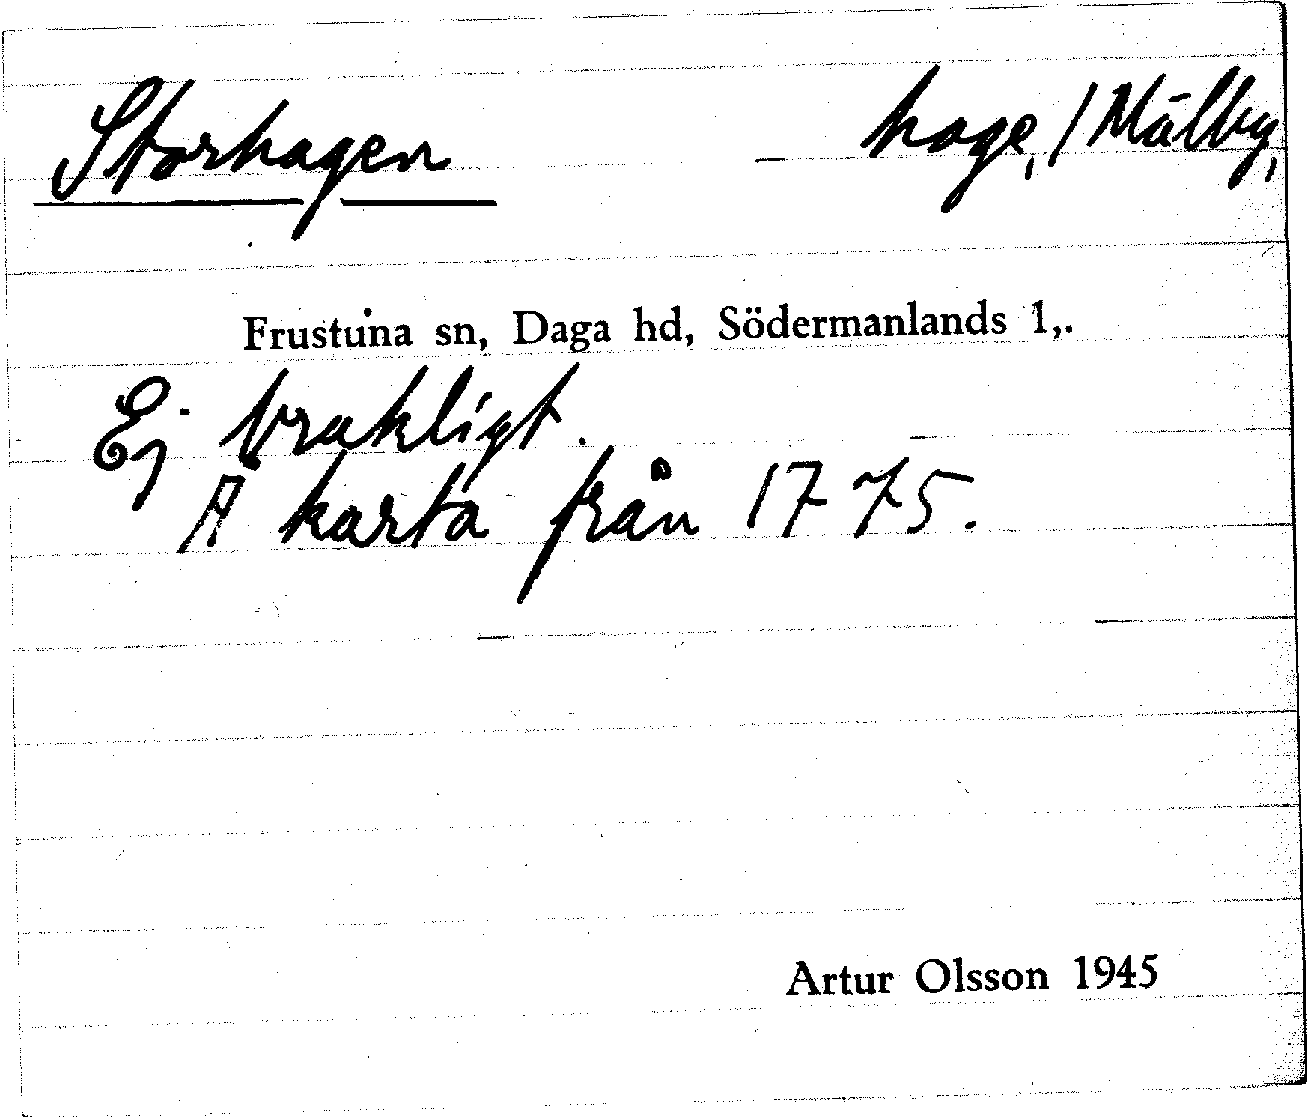 Storhagen hage, / Mälby,
Frustuna sn, Daga hd, Södermanlands l,.
Ej brukligt.
Å karta från 1775.
Artur Olsson 1945